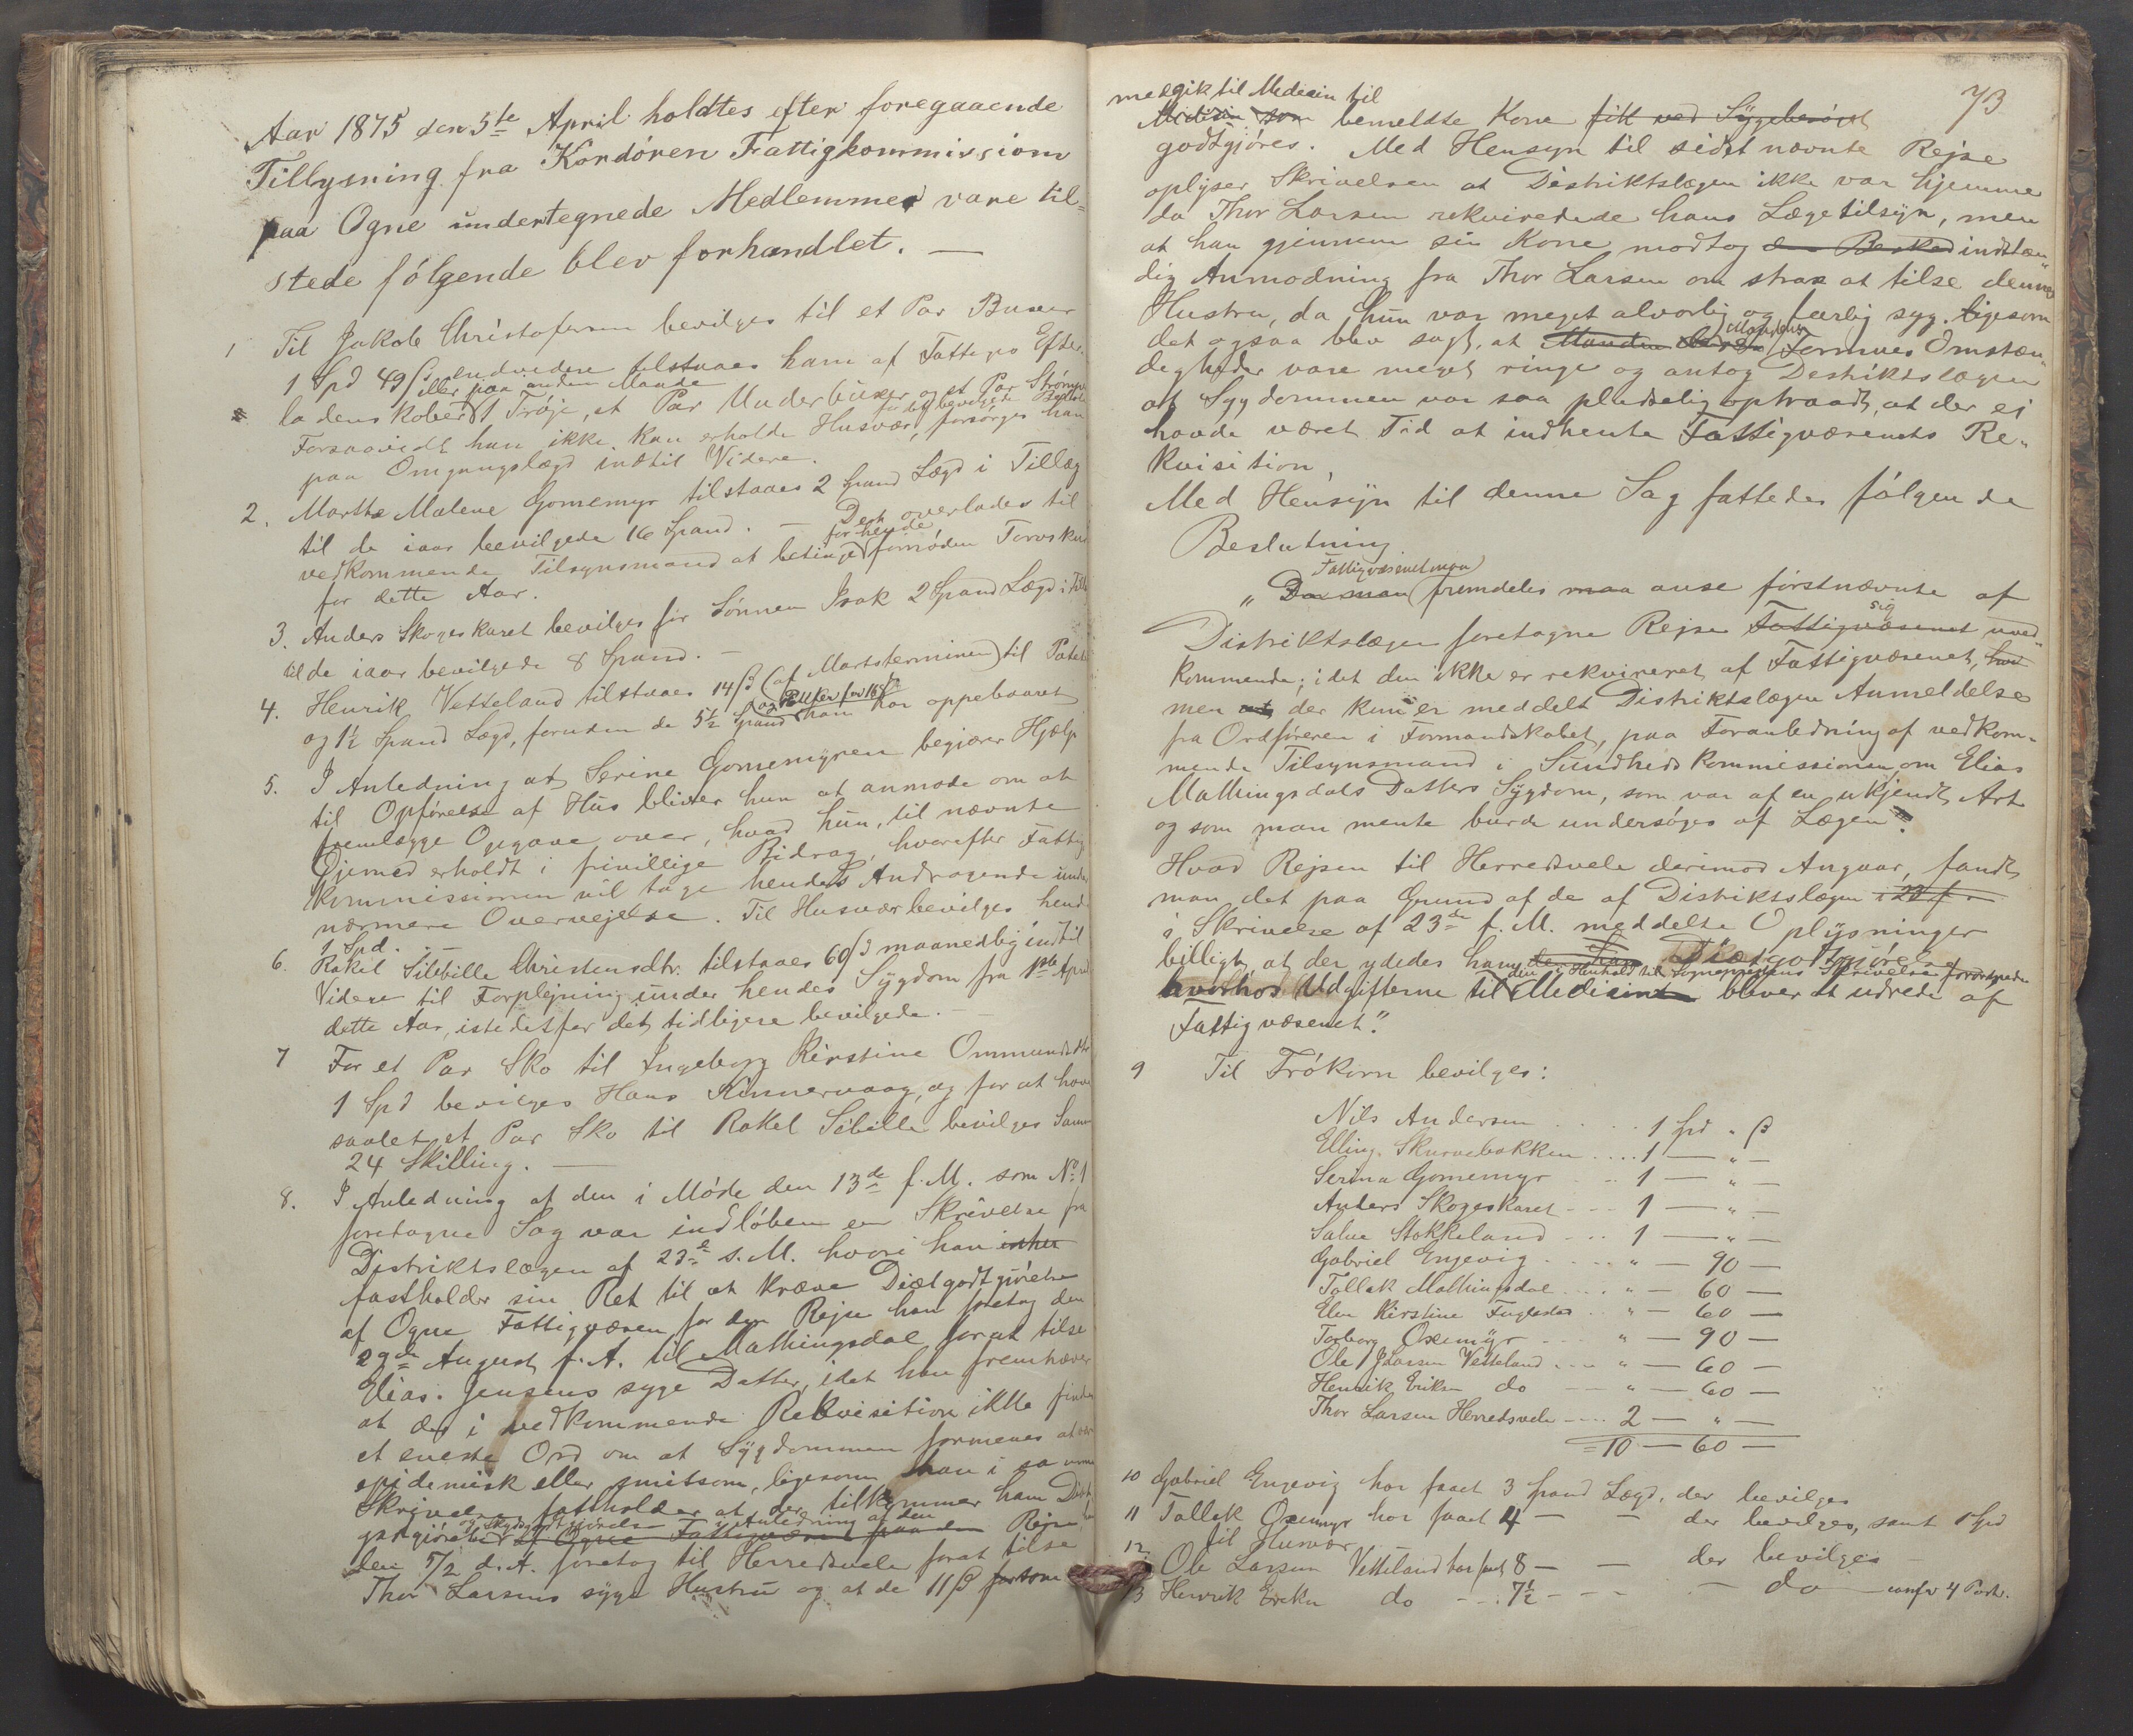 Aar 1875 den 5te April holdtes efter foregaaende
Tillysning fra Kordøren Fattigkommission
paa Ogne undertegnede Medlemmer vare til-
stede følgende blev forhandlet. —
1 Til Jakob Christofersen bevilges til et Par Buxer
1 Spd 49 ß, endvidere tilstaaes ham af Fattiges Efter-
eller paa anden Maade
ladenskaber 1 Trøje, et Par Underbuxer og et Par Strømper
Forsaavidt han ikke kan erholde Husvær, forsørges han
for det bevilgede
paa Omgangslægd indtil Videre.
2. Marthe Malene Gomemyr tilstaaes 2 Spand Lægd i Tillæg
til de iaar bevilgede 16 Spand. — Det overlades til
for hende
vedkommende Tilsynsmand at betinge fornøden Torvskur
for dette Aar.
3. Anders Skogeskaret bevilges for Sønnen Isak 2 Spand Lægd i
til de iaar bevilgede 8 Spand. —
4. Henrik Vetteland tilstaaes 14 ß (af Martsterminen) til
og 1½ Spand Lægd, foruden de 5½ Spand han har oppebaaret
5. I Anledning at Serine Gomemyren begjærer Hjælp
til Opførelse af Hus bliver hun at anmode om at
fremlægge Opgave over, hvad hun, til nævnte
Øjemed erholdt i frivillige Bidrag, hvorefter Fattig
kommissionen vil tage hendes Andragende under
nærmere Overvejelse. Til Husvær bevilges hende
1 Spd. —
6. Rakel Sibille Christensdtr. tilstaaes 60 ß maanedlig indtil
Videre til Forplejning under hendes Sygdom fra 1ste April
dette Aar, istedetfor det tidligere bevilgede. —
7 For et Par Sko til Ingeborg Kirstine Ommundsdtr
1 Spd bevilges Hans Kinnervaag, og for at have
saalet et Par Sko til Rakel Sibille bevilges Samme
24 Skilling. —
8. I Anledning af den i Møde den 13de f. M. som No 1
foretagne Sag var indløben en Skrivelse fra
Distriktslægen af 23de s. M. hvori han
fastholder sin Ret til at kræve Diætgodtgjørelse
af Ogne Fattigvæsen for den Rejse han foretog den
29de August f. A. til Mathingsdal for at tilse
Elias Jensens syge Datter, idet han fremhæver
at der i vedkommende Rekvisition ikke findes
et eneste Ord om at Sygdommen formenes at være
epidemisk eller smitsom, ligesom han i sa
Skrivelse fastholder at der tilkommer ham Diæt
og Skydsgodtgjørelse i Anledning af den
godtgjørelse af Ogne Fattigvæsen paa den Rejse han
den 5/2 d. A. foretog til Herredsvele forat tilse
Thor Larsens syge Hustru og at de 11 ß
73
medgik til Medicin til
Medicin som bemeldte Kone fik ved Sygebesøget
godtgjøres. Med Hensyn til sidst nævnte Rejse
oplyser Skrivelsen at Distriktslægen ikke var hjemme
da Thor Larsen rekvirerede hans Lægetilsyn, men
at han gjennem sin Kone modtog den Besked indstæn-
dig Anmodning fra Thor Larsen om strax at tilse dennes
Hustru, da hun var meget alvorlig og farlig syg. ligesom
det ogsaa blev sagt, at Manden Formues Omstæn-
digheder vare meget ringe og antog Destriktslægen
at Sygdommen var saa pludselig optraadt, at der ei
havde været Tid at indhente Fattigvæsenets Re-
kvisition.
Med Hensyn til denne Sag fattedes følgende
Beslutning
Fattigvæsenet maa
„Da man fremdeles maa anse førstnævnte af
sig
Distriktslægen foretagne Rejse Fattigvæsenet uved-
kommende; idet den ikke er rekvireret af Fattigvæsenet,
men at der kun er meddelt Distriktslægen Anmeldelse
fra Ordføreren i Formandskabet, paa Foranledning af vedkom-
mende Tilsynsmand i Sundhedskommissionen om Elias
Mathingsdals Datters Sygdom, som var af en ukjendt Art
og som man mente burde undersøges af Lægen.
Hvad Rejsen til Herredsvele derimod Angaar, fandt
man det paa Grund af de af Distriktslægen i 23 f
i Skrivelse af 23de f. M. meddelte Oplysninger
billigt, at der ydedes ham den Diætgodtgjørelse
den i Henhold til Sognepræstens Skrivelse
hvorhos Udgifterne til Medicin bliver at udrede af
Fattigvæsenet."
9 Til Frøkorn bevilges:
Nils Andersen . . . . . 1 Spd „ ß
Elling Skurvebakken . . . . 1 — „ —
Serina Gomemyr . . . 1 — „ —
Anders Skogeskaret - - - 1 — „ —
Salve Stokkeland . . . 1 — „ —
Gabriel Engevig . . . . „ — 90 —
Tollak Mathingsdal . . . . „ — 60 —
Elen Kirstine Fuglestad . „ — 60 —
Torborg Oxemyr . . . „ — 90 —
Ole Larsen Vetteland . . . „ — 60 —
Henrik Eriksen do - - „ — 60 —
Thor Larsen Herredsvele - . . . 2 — „ —
= 10 — 60 —
10 Gabriel Engevig har faaet 3 Spand Lægd, der bevilges
11 Tollak Oxemyr har faaet 4 — — der bevilges, samt 1 Spd
til Husvær
12 Ole Larsen Vetteland har faat 8 — — der bevilges
13 Henrik Eriksen do - - 7½ - - - — do — confr 4 Post.